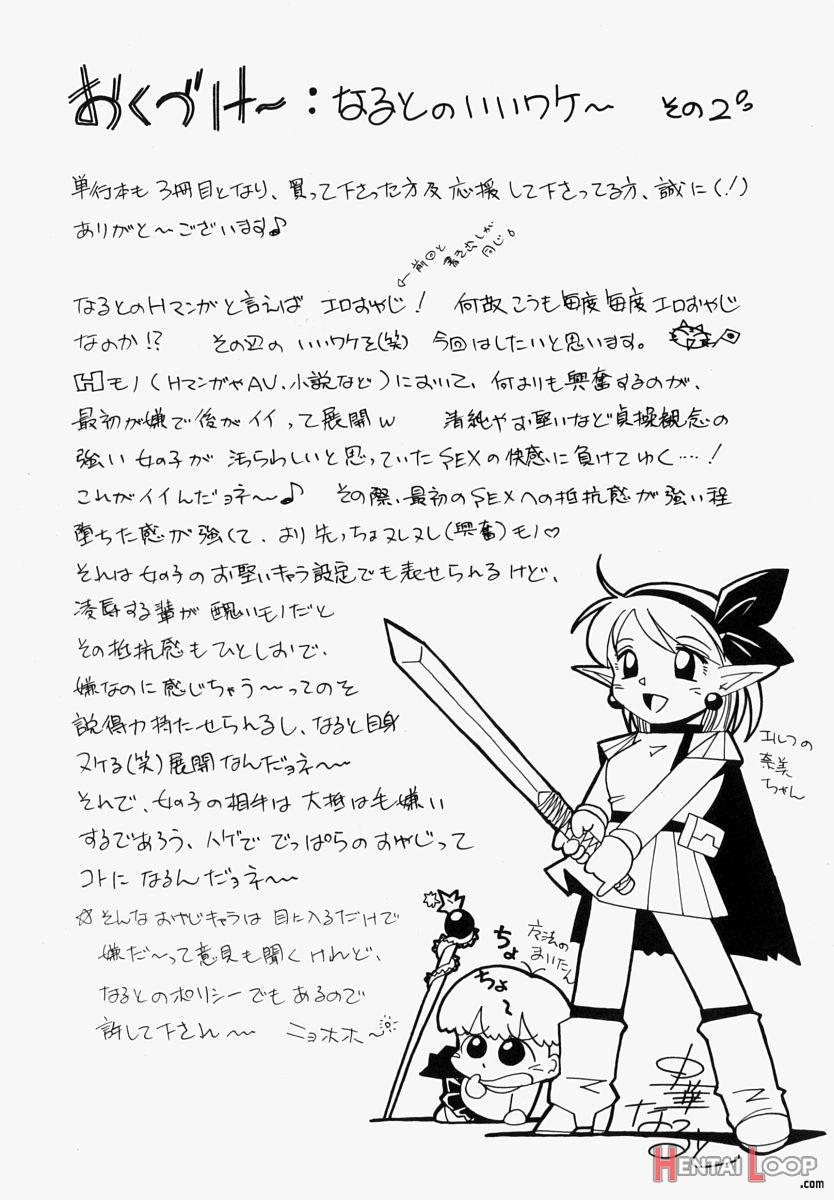 おくづけ〜：なるとのいいワケ〜 その2。
単行本も3冊目となり、買って下さった方及応援して下さってる方、誠に(！)
ありがと〜ございます♪
←前回と
書き出しが
同じ。
なるとのHマンガと言えば エロおやじ！ 何故こうも毎度毎度エロおやじ
なのか！？ その辺の いいワケを(笑) 今回はしたいと思います。
Hモノ(HマンガやAV、小説など)において、何よりも興奮するのが、
最初が嫌で後がイイって展開w 清純やお堅いなど貞操観念の
強い女の子が 汚らわしいと思っていたSEXの快感に負けてゆく…！
これがイイんだョネ〜♪ その際、最初のSEXへの抵抗感が強い程
堕ちた感が強くて、より先っちょヌレヌレ(興奮)モノ♡
それは女の子のお堅いキャラ設定でも表せられるけど、
凌辱する輩が醜いモノだと
その抵抗感もひとしおで、
嫌なのに感じちゃう〜ってのを
説得力持たせられるし、なると自身
ヌケる(笑)展開なんだョネ〜
それで、女の子の相手は大抵は毛嫌い
するであろう、ハゲで でっぱらのおやじって
コトになるんだョネ〜
☆そんなおやじキャラは目に入るだけで
嫌だ〜って意見も聞くけれど、
なるとのポリシーでもあるので
許して下され〜 ニョホホ〜
エルフの
奈美
ちゃん
魔法の
まいたん
ちょ
ちょ〜
華
なると
HENTAI LOOP
.com